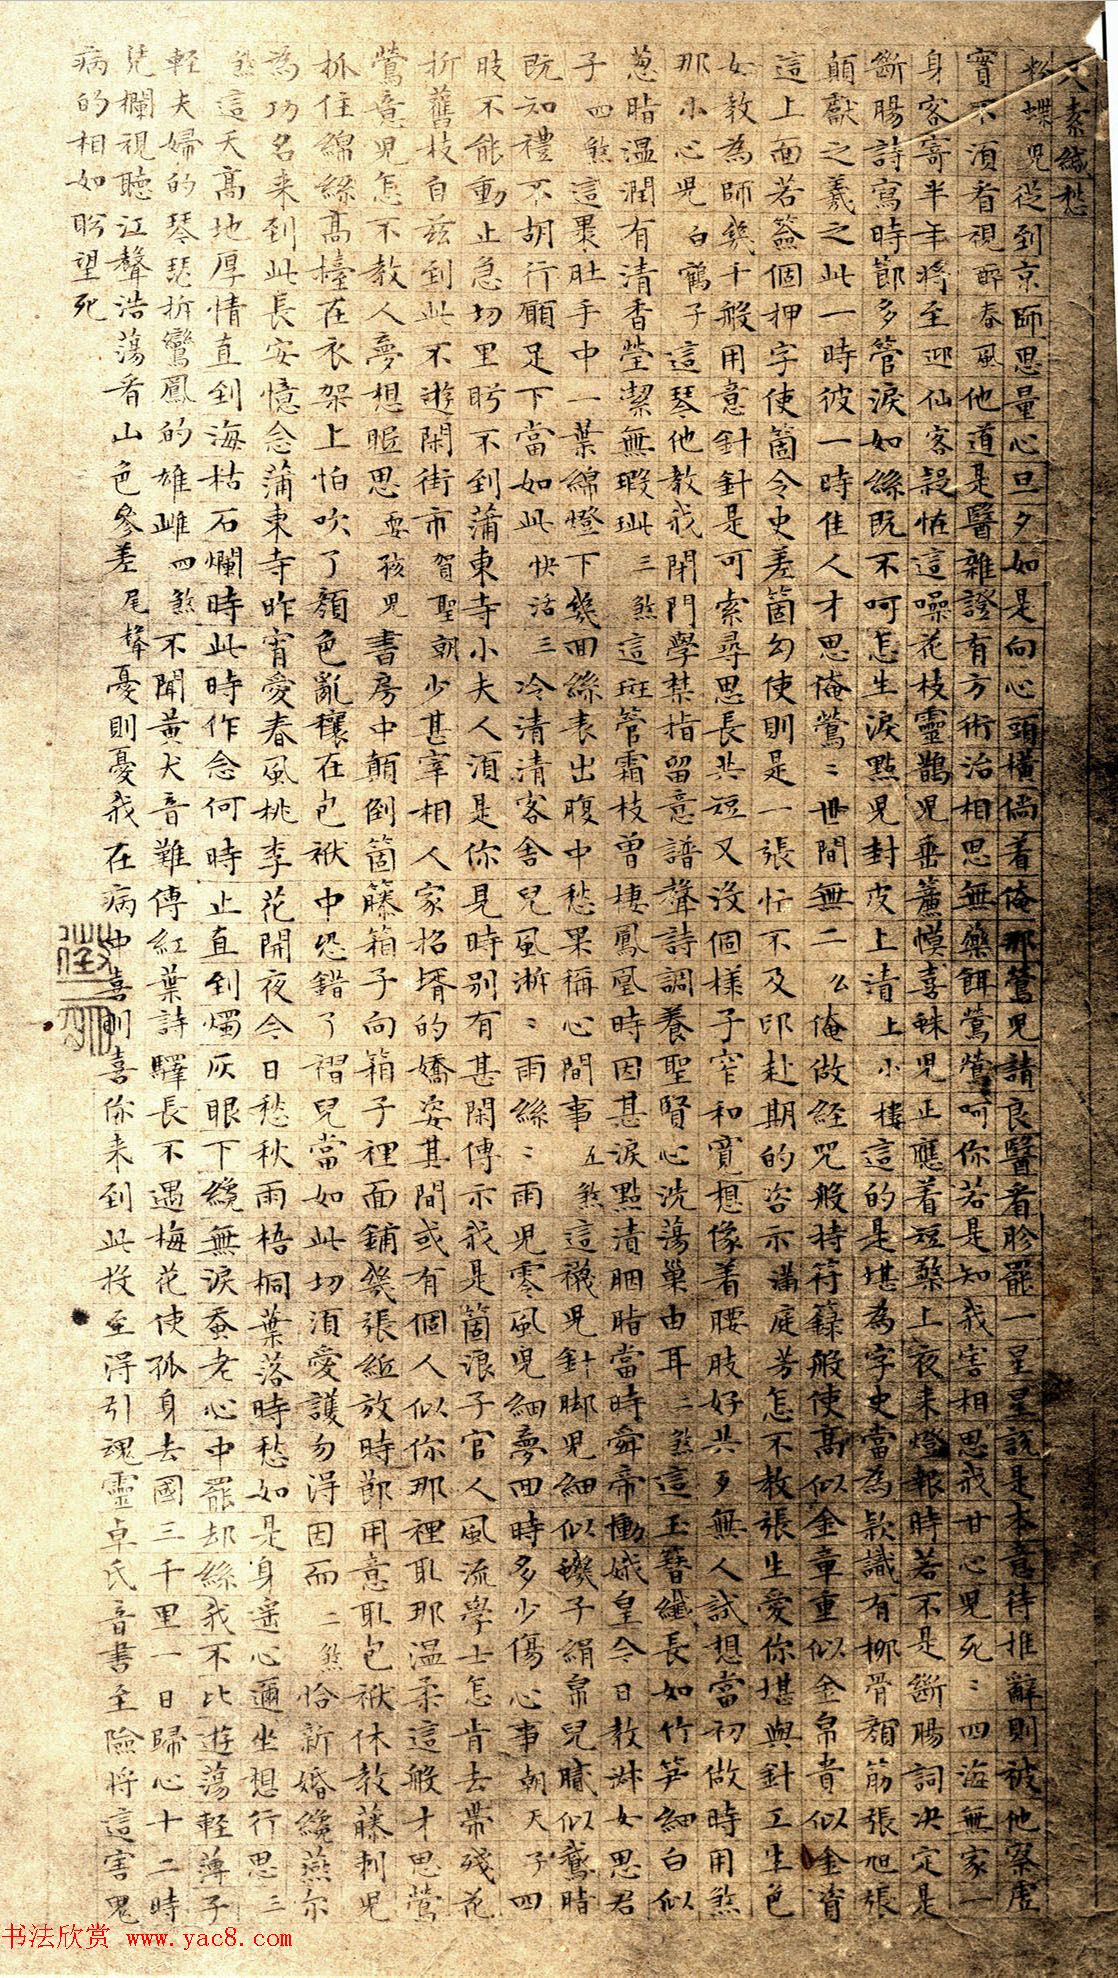 尺素緘愁
粉蝶兒從到京師思量心旦夕如是向心頭橫倘着俺那鶯兒請良醫看胗罷一星星說是本意待推辭則被他察虛
實不須看視醉春風他道是醫雜證有方術治相思無藥餌鶯鶯呵你若是知我害相思我甘心兒死〻四海無家一
身客寄半年將至迎仙客疑怪這噪花枝靈鵲兒垂簾幙喜蛛兒正應着短檠上夜來燈報時若不是斷腸詞决定是
斷腸詩寫時節多管淚如絲既不呵怎生淚點兒封皮上漬上小樓這的是堪為字史當為款識有柳骨顏筋張旭張
顛獻之羲之此一時彼一時佳人才思俺鶯〻世間無二么俺做經咒般持符籙般使高似金章重似金帛貴似金資
這上面若簽個押字使箇令史差箇勾使則是一張忙不及印赴期的咨示滿庭芳怎不教張生愛你堪與針工生色
女教為師幾千般用意針針是可索尋思長共短又沒個樣子窄和寬想像着腰肢好共歹無人試想當初做時用煞
那小心兒白鶴子這琴他教我閉門學禁指留意譜聲詩調養聖賢心洗蕩巢由耳二煞這玉簪纖長如竹笋細白似
葱脂温潤有清香瑩潔無瑕玼三煞這班管霜枝曾棲鳳凰時因甚淚點漬胭脂當時舜帝慟娥皇今日教淋女思君
子四煞這裹肚手中一葉綿燈下幾面絲表出腹中愁果稱心間事五煞這襪兒針脚兒細似蟣子絹帛兒膩似鵞脂
既知禮不胡行願足下當如此快活三冷清清客舍兒風淅〻雨絲〻雨兒零風兒細夢回時多少傷心事朝天子四
肢不能動止急切里盻不到蒲東寺小夫人須是你見時别有甚閑傳示我是箇浪子官人風流學士怎肯去帶殘花
折舊枝自兹到此不遊閑街市賀聖朝少甚宰相人家招壻的嬌姿其間或有個人似你那裡取那温柔這般才思鶯
鶯意兒怎不教人夢想眠思耍孩兒書房中顛倒箇籐箱子向箱子裡面鋪幾張紙放時節用意取包袱休教藤刺兒
抓住綿絲高檯在衣架上怕吹了顏色亂穰在包袱中恐錯了褶兒當如此切須愛護勿得因而二煞恰新婚纔燕尔
為功名来到此長安憶念蒲東寺昨宵愛春風桃李花開夜今日愁秋雨梧桐葉落時愁如是身遥心邇坐想行思三
煞這天高地厚情直到海枯石爛時此時作念何時止直到燭灰眼下纔無淚蚕老心中罷却絲我不比遊蕩輕薄子
輕夫婦的琴瑟折鸞鳳的雄雌四煞不聞黄犬音難傳紅葉詩驛長不遇梅花使孤身去國三千里一日歸心十二時
凭欄視聽江聲浩蕩看山色參差尾聲憂則憂我在病中喜則喜你来到此投至淂引魂靈卓氏音書至險將這害鬼
病的相如盻望死
书法欣赏 www.yac8.com